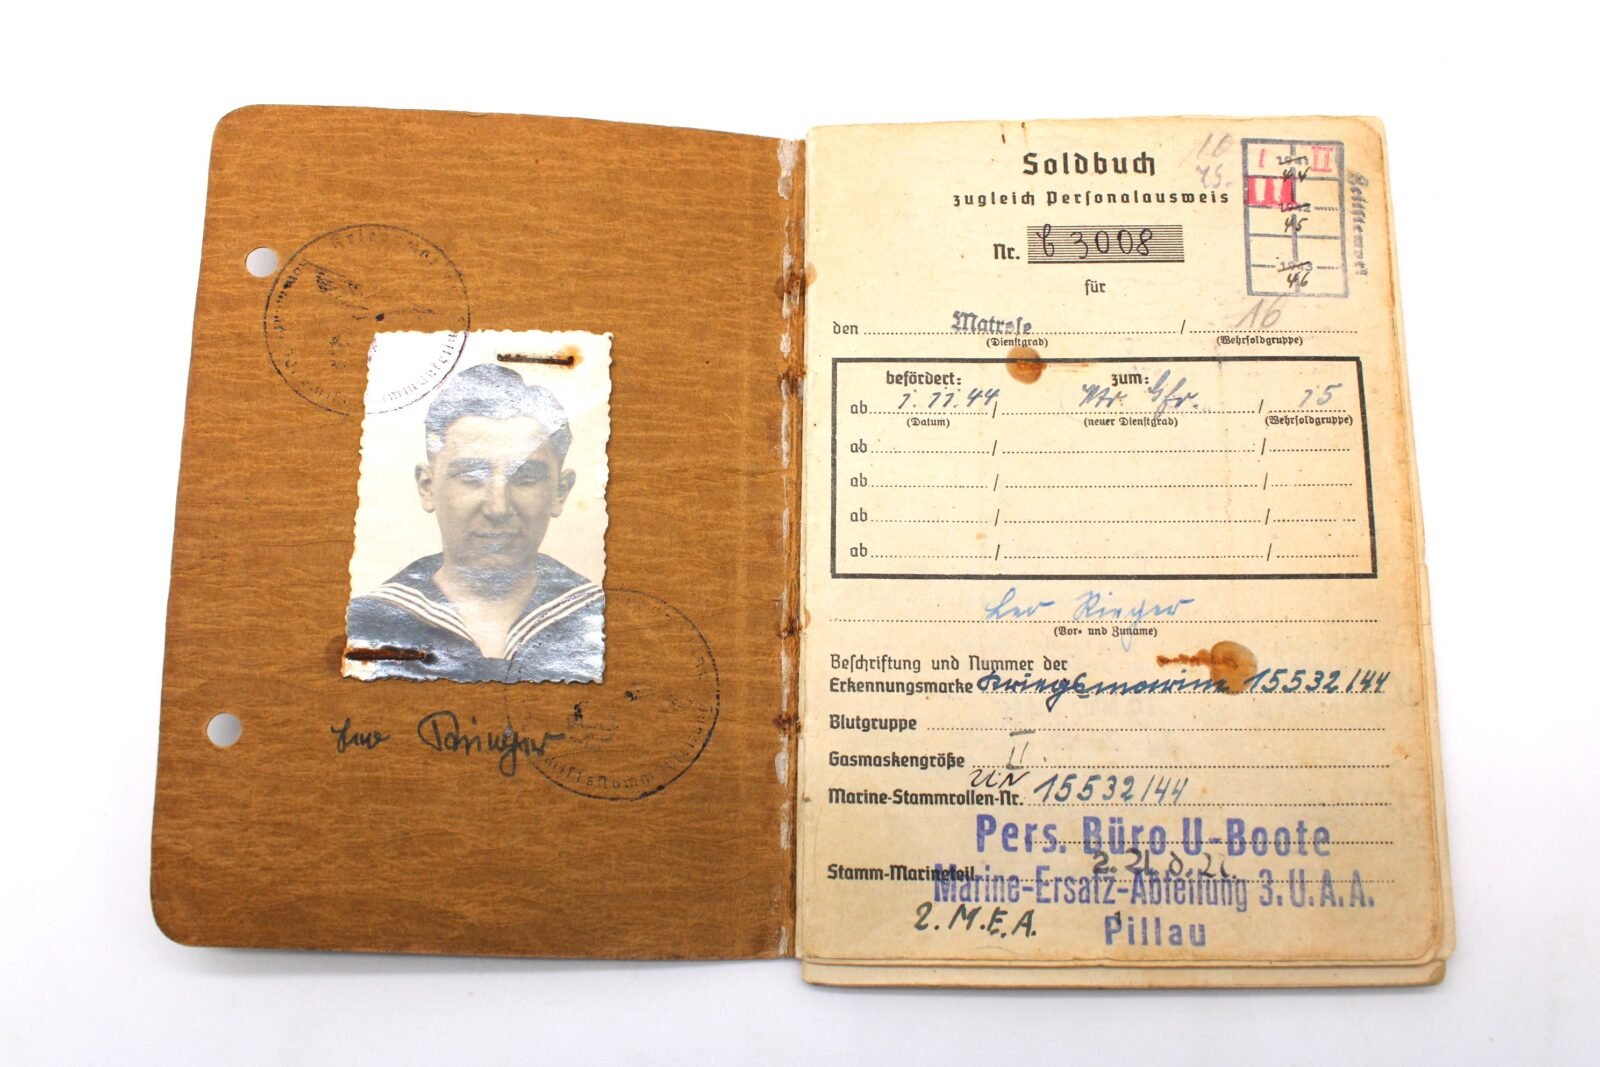 Leo Rieger
Soldbuch
zugleich Personalausweis
Nr. C 3008
für
den Matrose / 16
(Dienstgrad) (Wehrsoldgruppe)
befördert: zum:
ab 1.11.44 / Mtr. Gfr. / 15
(Datum) (neuer Dienstgrad) (Wehrsoldgruppe)
ab / /
ab / /
ab / /
ab / /
Leo Rieger
(Vor- und Zuname)
Beschriftung und Nummer der
Erkennungsmarke Kriegsmarine 15532/44
Blutgruppe
Gasmaskengröße II
Marine-Stammrollen-Nr. UN 15532/44
Pers. Büro U-Boote
Stamm-Marineteil
Marine-Ersatz-Abteilung 3.U.A.A.
2.M.E.A. Pillau
I 44 II
III
45
46